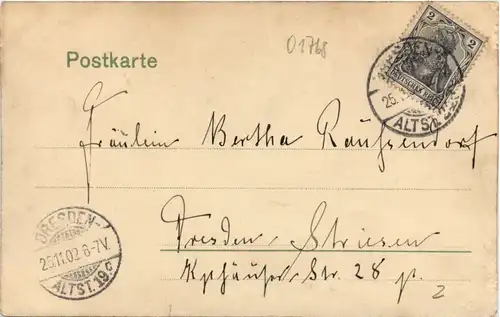 01768
Postkarte
2
DRESDEN
ALTST.
DEUTSCHES REICH
Fräulein Bertha Rauffendorf
DRESDEN-
25.11.02 6-7V.
ALTST. 19c
Dresden-Striesen
Kyffhäuser Str. 28 p.
2